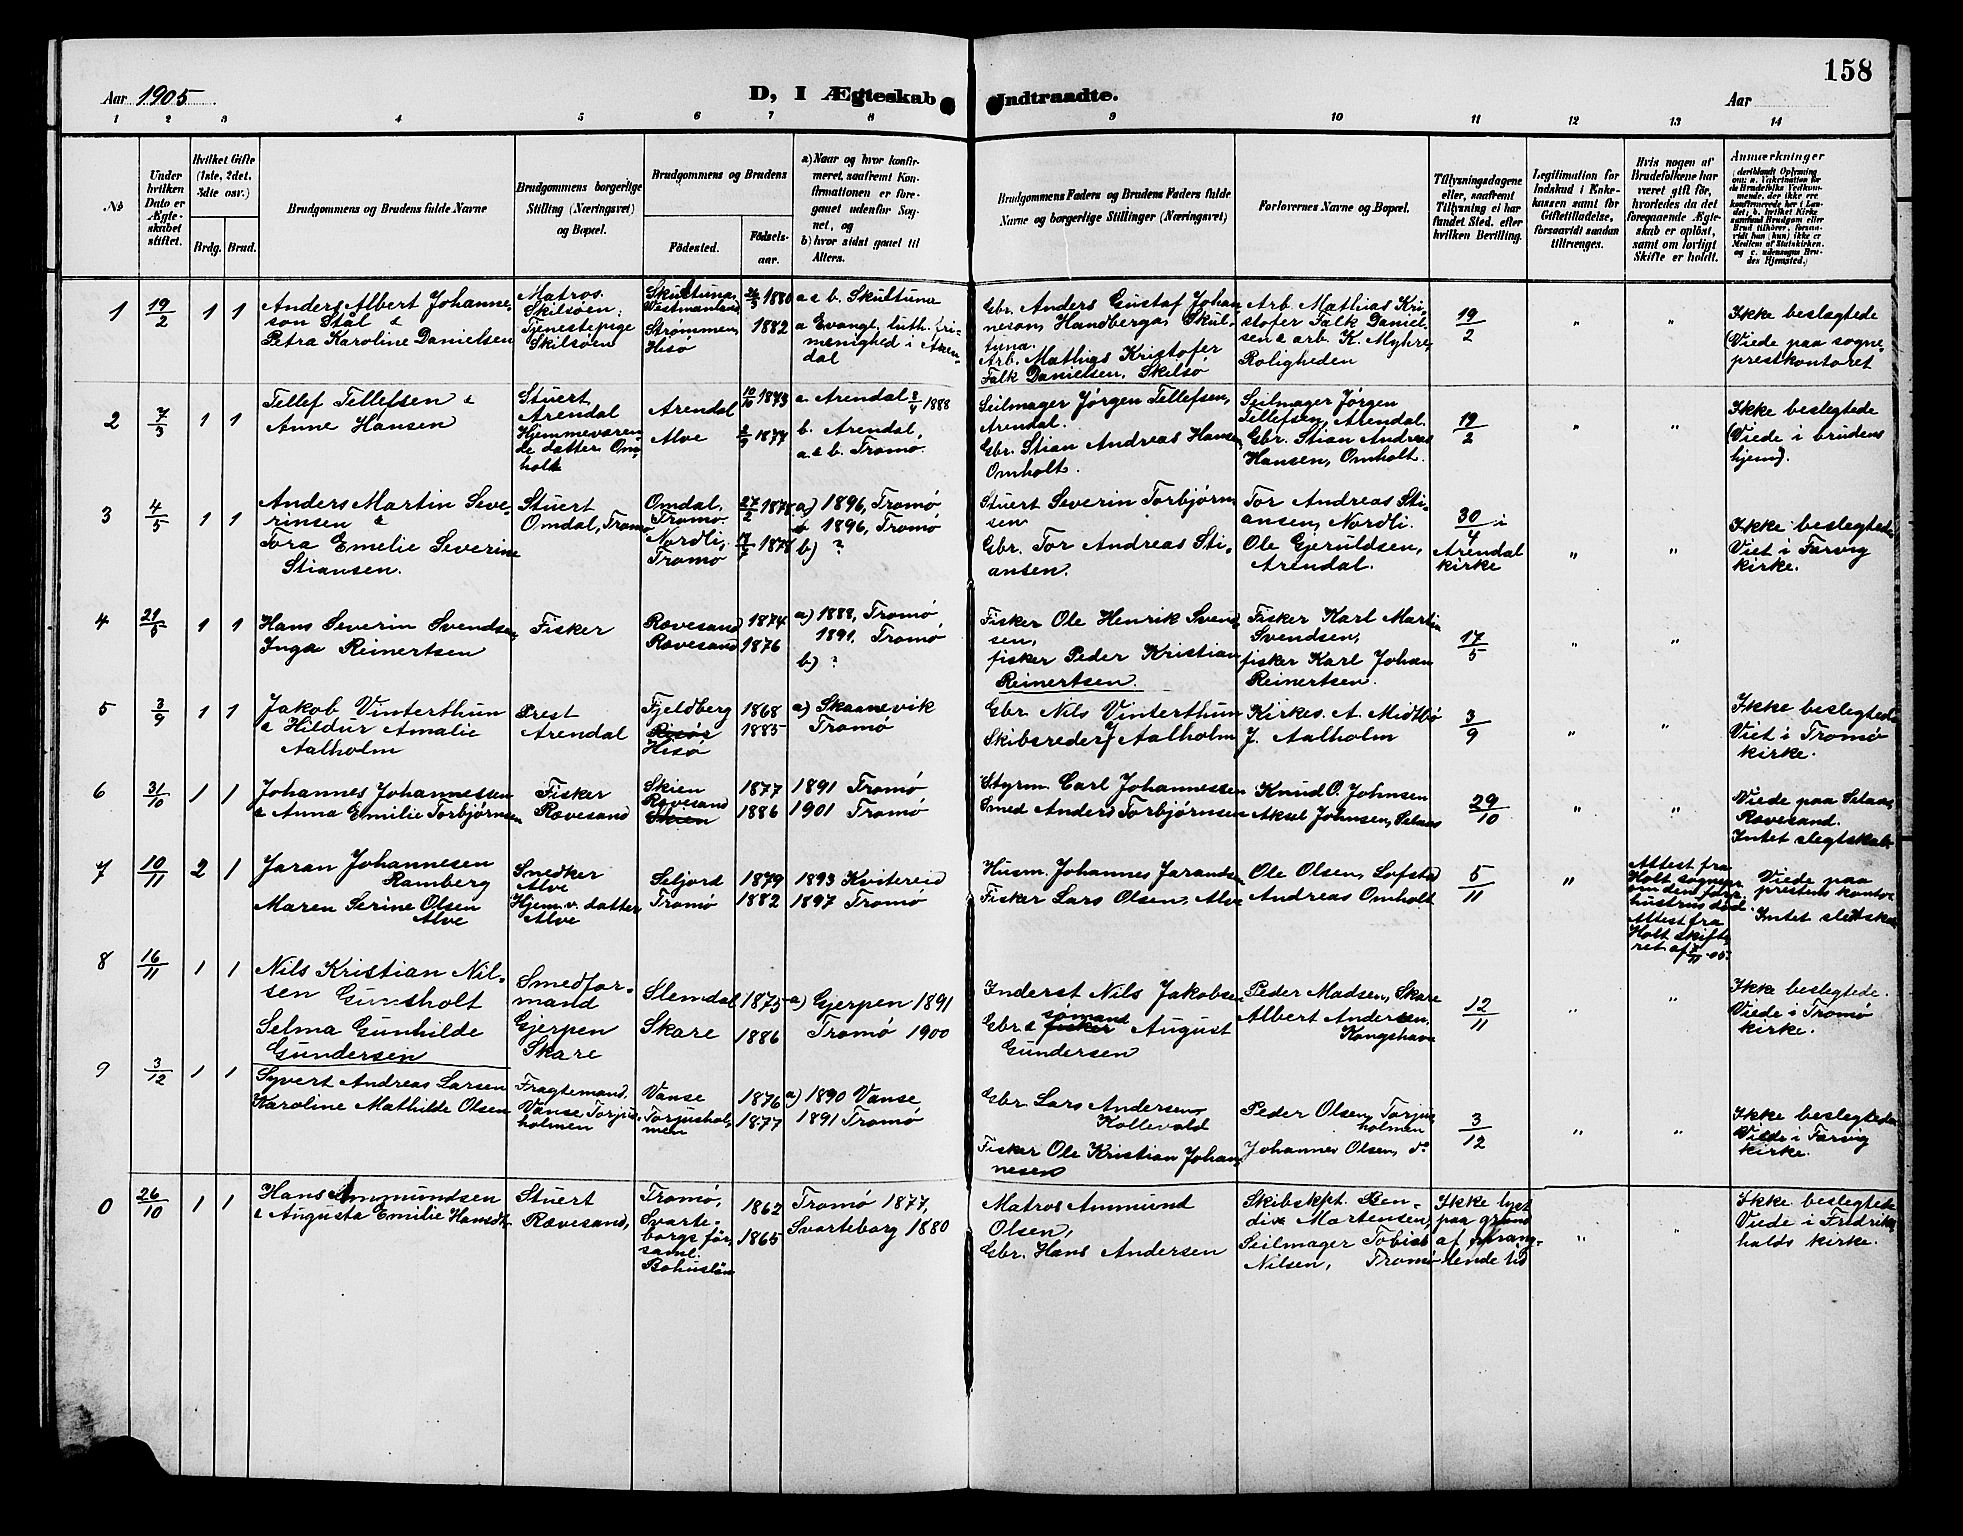 158
Aar 1905
D, I Ægteskab Indtraadte.
Aar
1 2 3 4 5 6 7 8 9 10 11 12 13 14
No
Under hvilken Dato er Ægteskabet stiftet.
Hvilket Gifte (1ste, 2det, 3dte osv.)
Brdg. Brud.
Brudgommens og Brudens fulde Navne
Brudgommens borgerlige Stilling (Næringsvei) og Bopæl.
Brudgommens og Brudens
Fødested.
Fødselsaar.
a) Naar og hvor konfirmeret, saafremt Konfirmationen er foregaaet udenfor Sognet, og
b) hvor sidst gaaet til Alters.
Brudgommens Faders og Brudens Faders fulde Navne og borgerlige Stillinger (Næringsvei)
Forlovernes Navne og Bopæl.
Tillysningsdagene eller, saafremt Tillysning ei har fundet Sted, efter hvilken Bevilling.
Legitimation for Indskud i Enkekassen samt for Giftetilladelse, forsaavidt saadan tiltrænges.
Hvis nogen af Brudefolkene har været gift før, hvorledes da det foregaaende Ægteskab er opløst, samt om lovligt Skifte er holdt.
Anmærkninger
1
19/2
1 1
Anders Albert Johanne-
son Stål &
Petra Karoline Danielsen
Matros.
Skilsøen;
Tjenestepige
Skilsøen
Skultuna,
Westmanland
Strømmen,
Hisø
1880
1882
a & b. Skultuna
a Evangl. luth. fri-
menighed i Aren-
dal
Gbr. Anders Gustaf Johan
neson, Handberga, Skul-
tuna.
Arb. Mathias Kristofer
Falk Danielsen, Skilsø
Arb. Mathias Kri-
stofer Falk Daniel-
sen & arb. K. Myhre,
Roligheden
19/2
" "
Ikke beslegtede
(Viede paa sogne-
prestkontoret
2
7/3
1 1
Tellef Tellefsen &
Anne Hansen
Stuert
Arendal
Hjemmeværen-
de datter Om-
holt
Arendal
Alve
10/10 1873
1877
a. Arendal 8/4 1888
b. Arendal,
a. & b. Tromø.
Seilmager Jørgen Tellefsen,
Arendal.
Gbr. Stian Andreas Hansen,
Omholt.
Seilmager Jørgen
Tellefsen, Arendal.
Gbr. Stian Andreas
Hansen, Omholt.
19/2
" "
Ikke beslegtede
(Viede i brudens
hjem).
3
4/5
1 1
Anders Martin Seve-
rinsen &
Tora Emelie Severine
Stiansen.
Stuert
Omdal, Tromø
Omdal,
Tromø.
Nordli,
Tromø
27/2 1878
1878
a) 1896, Tromø
1896, Tromø
b) ?
Stuert Severin Torbjørn-
sen
Gbr. Tor Andreas Sti-
ansen.
Tor Andreas Sti-
ansen, Nordli.
Ole Gjeruldsen,
Arendal.
30/4 i
Arendal
kirke
" "
Ikke beslegtede
Viet i Færvig
kirke.
4
21/5
1 1
Hans Severin Svendsen,
Inga Reinertsen
Fisker
Rævesand
Rævesand
1874
1876
a) 1888, Tromø
1891, Tromø
b) ?
Fisker Ole Henrik Svend-
sen,
fisker Peder Kristian
Reinertsen.
Fisker Karl Martin
Svendsen,
fisker Karl Johan
Reinertsen.
17/5
" "
5
3/9
1 1
Jakob Vinterthun
& Hildur Amalie
Aalholm
Prest
Arendal
Fjeldberg
Risør
Hisø
1868
1885
a) Skaanevik
Tromø
Gbr. Nils Vinterthun
Skibsreder J Aalholm
Kirkes. A. Midtbø
J. Aalholm
3/9
" "
Ikke beslegtede
Viet i Tromø
kirke.
6
31/10
1 1
Johannes Johannessen
& Anna Emilie Torbjørnsen
Fisker
Rævesand
Skien
Rævesand
Skien
1877
1886
1891 Tromø
1901 Tromø
Styrm. Carl Johannessen
Smed Anders Torbjørnsen
Knud O. Johnsen
Aksel Johnsen, Selaas
29/10
" "
Viede paa Selaas
Rævesand.
Intet slegtskab.
7
10/11
2 1
Jaran Johannesen
Ramberg
Maren Serine Olsen
Alve
Snedker
Alve
Hjem. v. datter
Alve
Seljord
Tromø
1879
1882
1893 Kvitereid
1897 Tromø
Husm. Johannes Jarandsen
Fisker Lars Olsen, Alve
Ole Olsen, Lofstad
Andreas Omholt
5/11
"
Attest fra
Holt sognepr.
om den forr.
hustrus død.
Attest fra
Holt skifte-
ret af 7/11 05.
Viede paa
prestens kontor
Intet slektskab
8
16/11
1 1
Nils Kristian Nil-
sen Gunsholt
Selma Gunhilde
Gundersen
Smedfor-
mand
Gjerpen
Skare
Slemdal
Skare
1875
1886
a) Gjerpen 1891
Tromø 1900
Inderst Nils Jakobsen
Gbr & fisker sømand August
Gundersen
Peder Madsen, Skare
Albert Andersen,
Kongshavn
12/11
" "
Ikke beslegtede.
Viede i Tromø
kirke.
9
3/12
1 1
Syvert Andreas Larsen
Karoline Mathilde Olsen
Fragtemand.
Vanse, Torjus-
holmen
Vanse
Torjushol-
men
1876
1877
a) 1890 Vanse
1891 Tromø
Gbr. Lars Andersen,
Kollevold
Fisker Ole Kristian Johan-
nesen
Peder Olsen, Torjus-
holmen
Johannes Olsen, do
3/12
" "
Ikke beslegtede
Viede i Færvig
kirke.
0
26/10
1 1
Hans Ammundsen
& Augusta Emilie Hansdt.
Stuert
Rævesand,
Tromø,
Svarte-
borgs för-
saml.
Bohuslän
1862
1865
Tromø 1877,
Svarteborg 1880
Matros Ammund
Olsen,
Gbr. Hans Andersen
Skibskpt. Ben-
dix Martensen,
Seilmager Tobias
Nilsen, Tromø
Ikke lyst
paa grund
af mang-
lende tid
" "
Ikke beslegtede
Viede i Fredriks-
halds kirke.